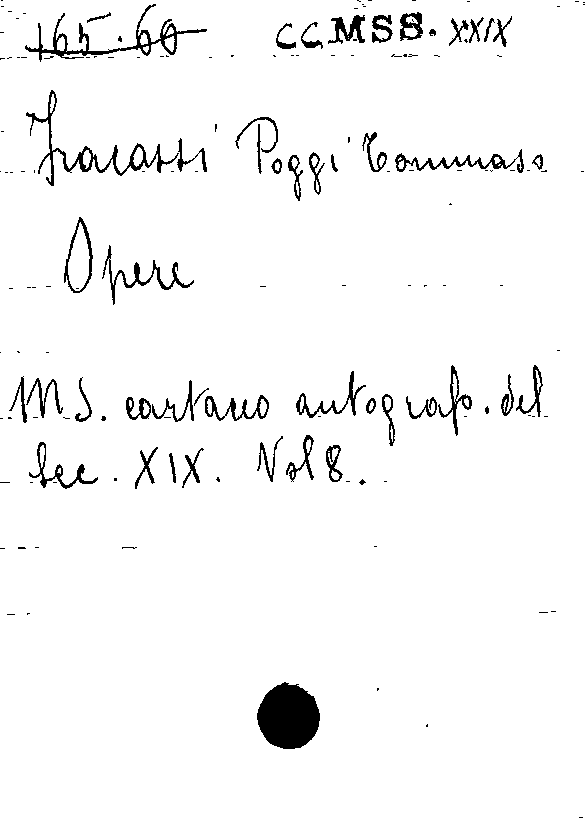 165.60 CC.MSS. XXIX
Fracassi Poggi Tommaso
Opere
MS. cartaceo autografo. del
Sec. XIX. Vol 8.